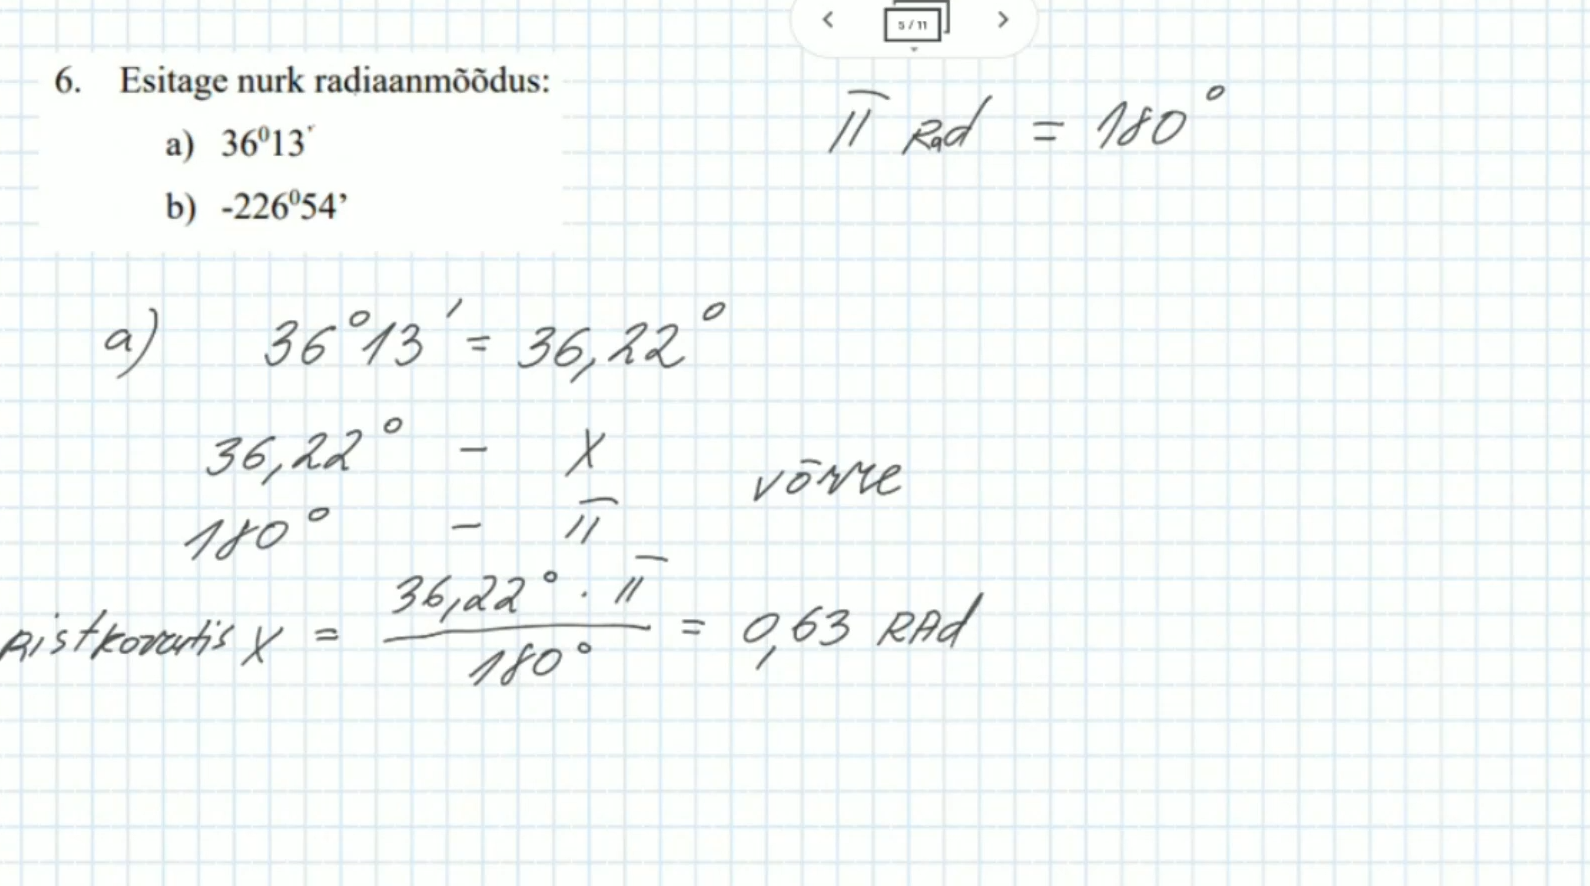 5 / 11
6. Esitage nurk radiaanmõõdus:
a) 36⁰13'
b) -226⁰54’
π Rad = 180°
a) 36°13' = 36,22°
36,22° - X
180° - π
võrre
Ristkorrutis X = 36,22° · π / 180° = 0,63 RAd